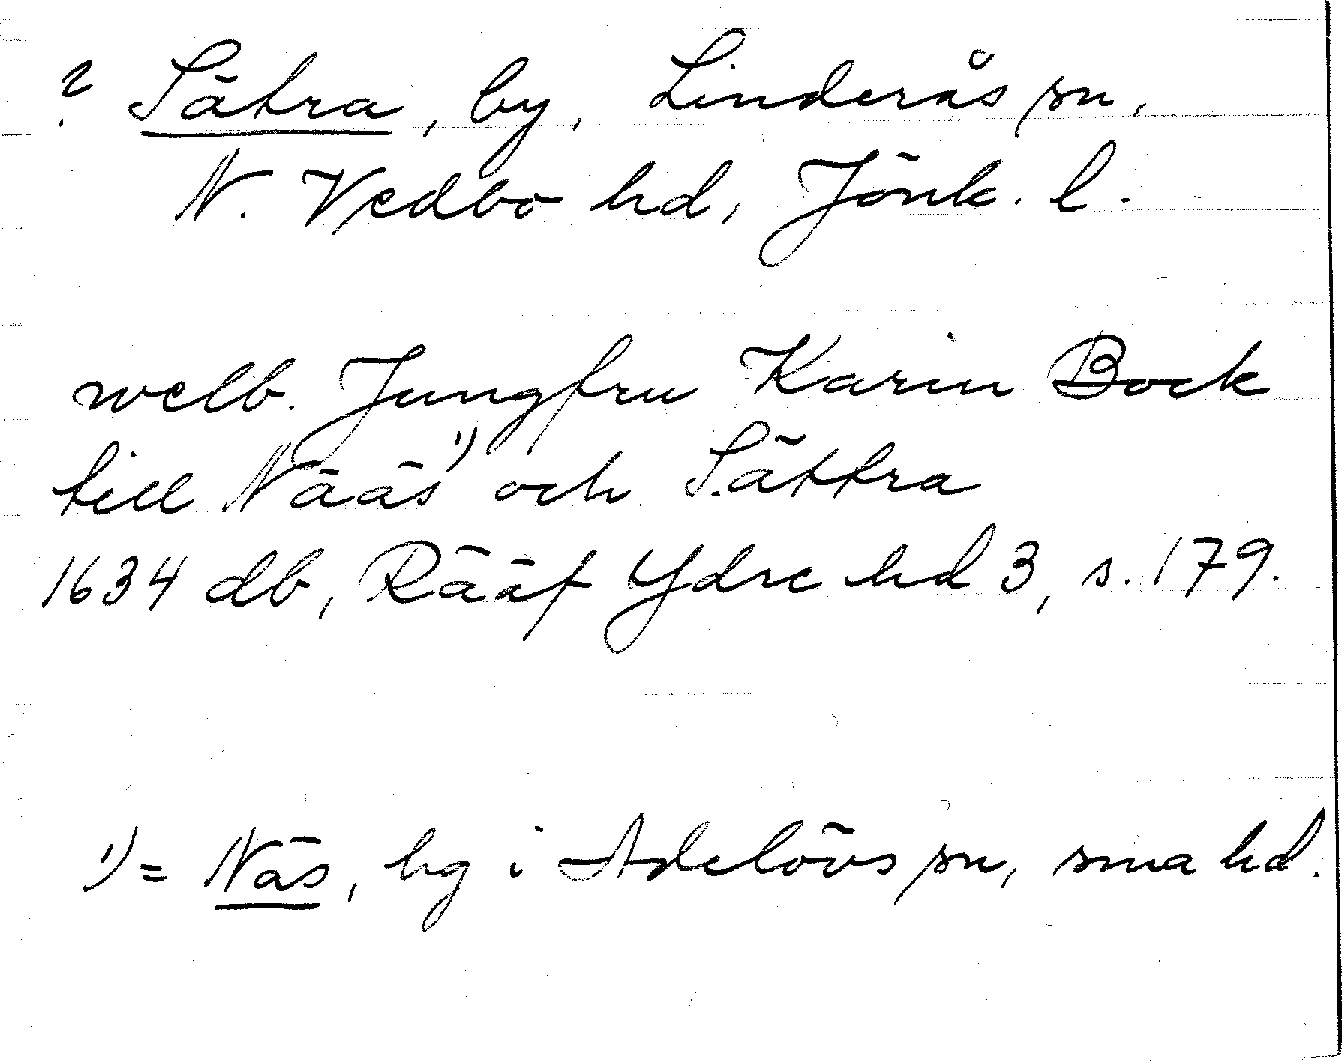 ? Sätra, by, Linderås sn,
N. Vedbo hd, Jönk. l.
welb. Jungfru Karin Bock
till Nääs¹⁾ och Sättra
1634 db, Rääf Ydre hd 3, s. 179.
¹⁾= Näs, hg i Adelövs sn, sma hd.